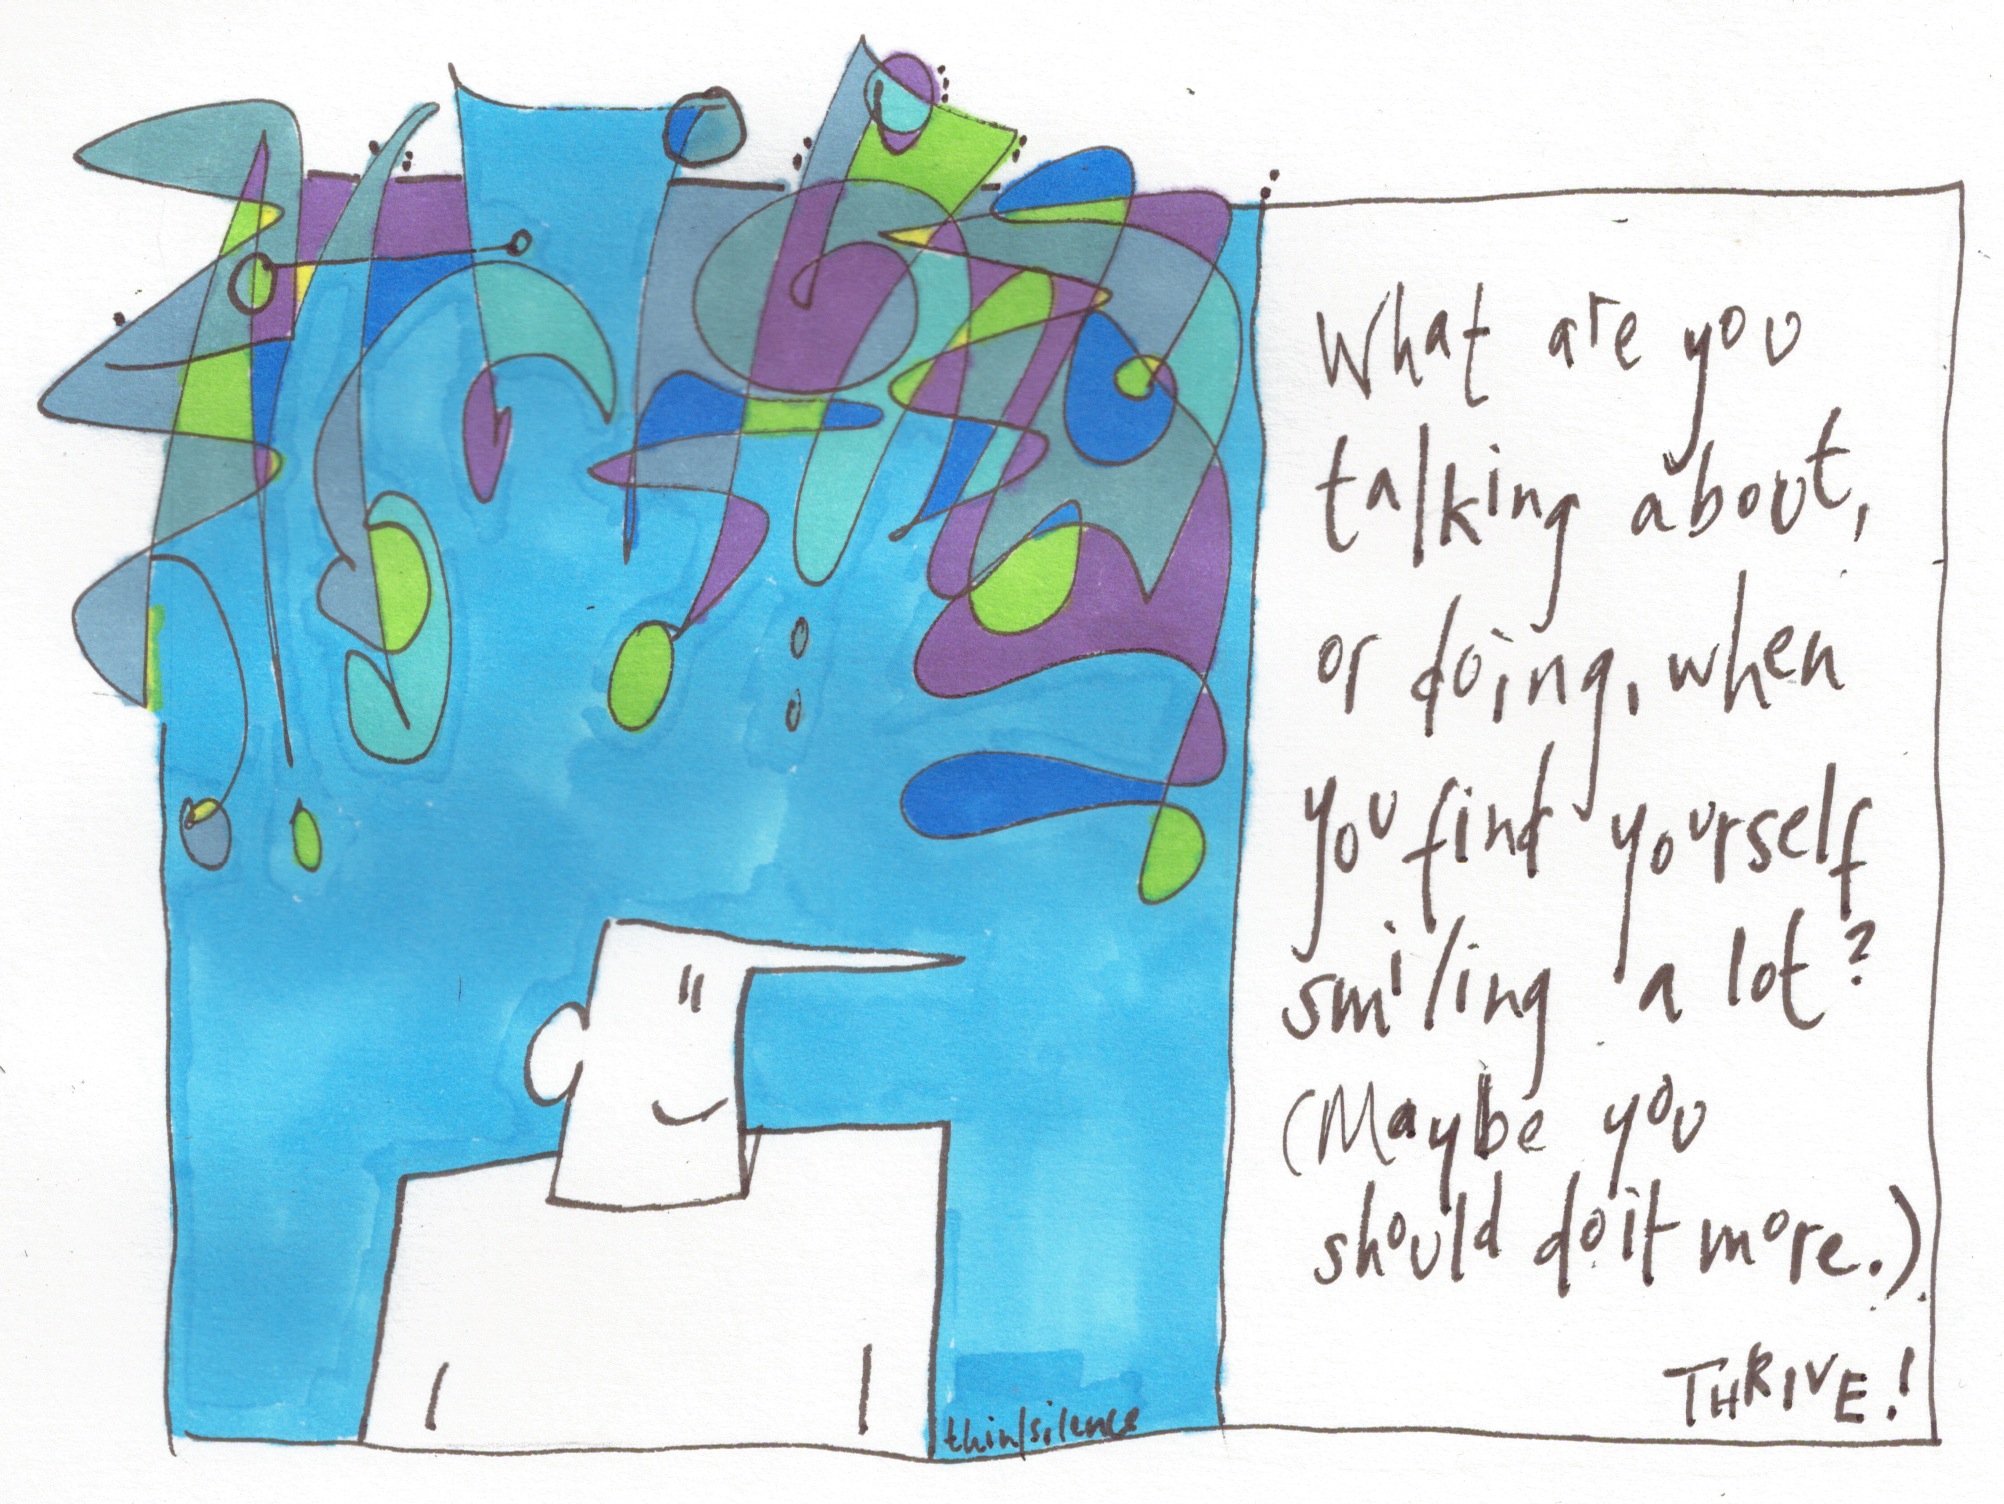 What are you
talking about,
or doing, when
you find yourself
smiling a lot?
(Maybe you
should do it more.)
THRIVE!
thin|silence